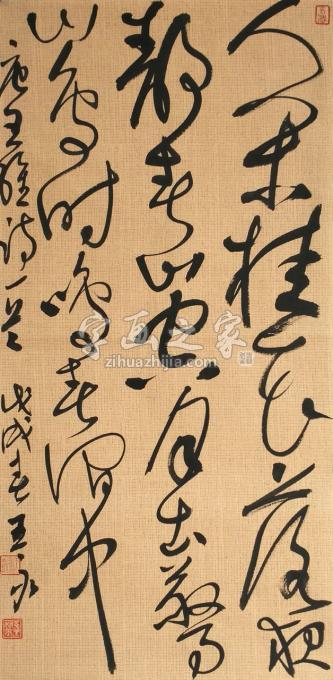 人閒桂花落夜
靜春山空月出驚
山鳥時鳴春澗中
唐王維詩一首 戊戌春王永
字画之家
zihuazhijia.com